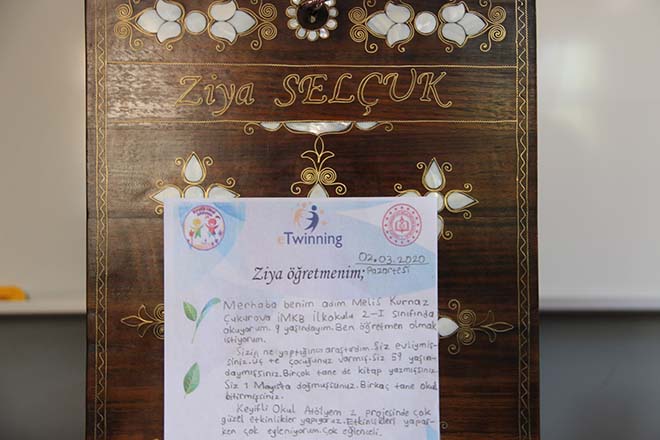 Ziya SELÇUK
eTwinning
02.03.2020
Pazartesi
Ziya öğretmenim;
Merhaba benim adım Melis Kurnaz
Çukurova İMKB İlkokulu 2-I Sınıfında
okuyorum. 9 yaşındayım. Ben öğretmen olmak
istiyorum.
Sizin ne yaptığınızı araştırdım. Siz evliymiş-
siniz. Üç te çocuğunuz varmış. Siz 59 yaşın-
daymışsınız. Birçok tane de kitap yazmışsınız.
Siz 1 Mayısta doğmuşsunuz. Birkaç tane okul
bitirmişsiniz.
Keyifli Okul Atölyem 2 projesinde çok
güzel etkinlikler yapıyoruz. Etkinlikleri yapar-
ken çok eğleniyorum. Çok eğlenceli.